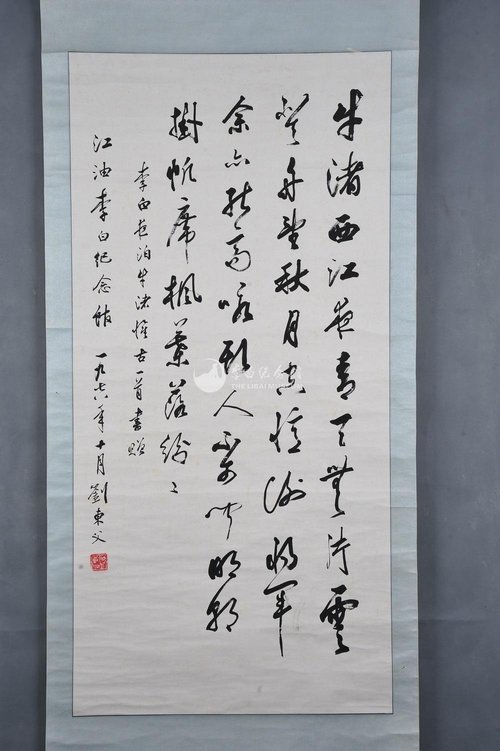 牛渚西江夜青天無片雲
登舟望秋月空憶謝將軍
余亦能高詠斯人不可聞明朝
掛帆席楓葉落紛々
李白夜泊牛渚懷古一首書贈
江油李白紀念館 一九七八年十月 劉東父
李白纪念馆
THE LIBAI MUSEUM